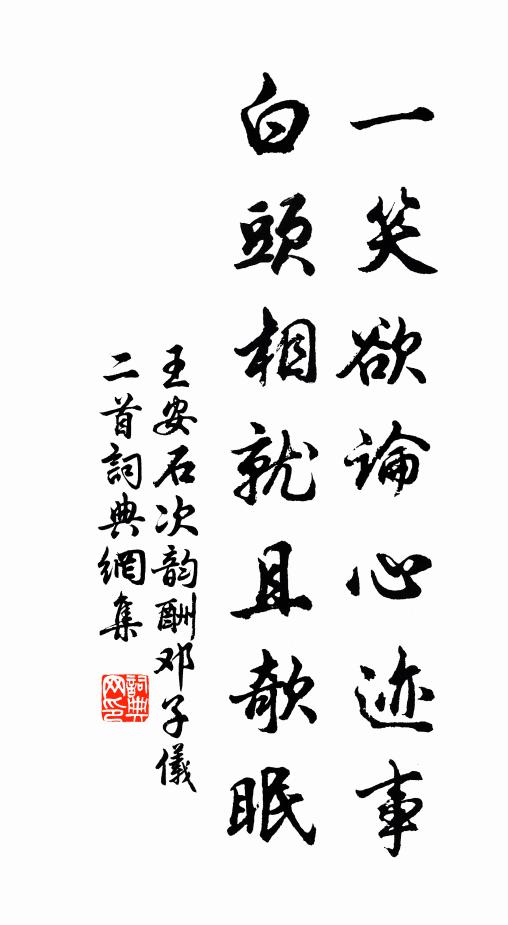 一笑欲論心迹事
白頭相就且欹眠
王安石次韵酬邓子儀
二首詞典網集
詞典网印